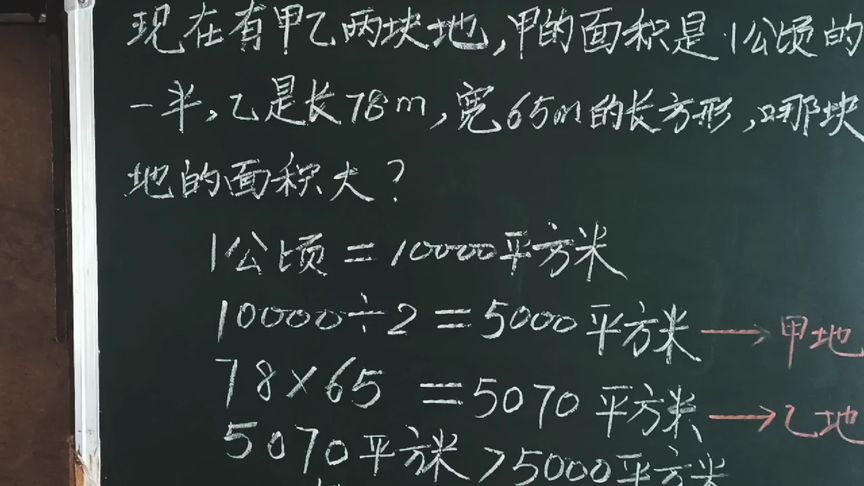 现在有甲乙两块地,甲的面积是1公顷的
一半,乙是长78m,宽65m的长方形,哪块
地的面积大?
1公顷=10000平方米
10000÷2=5000平方米→甲地
78×65=5070平方米→乙地
5070平方米>5000平方米